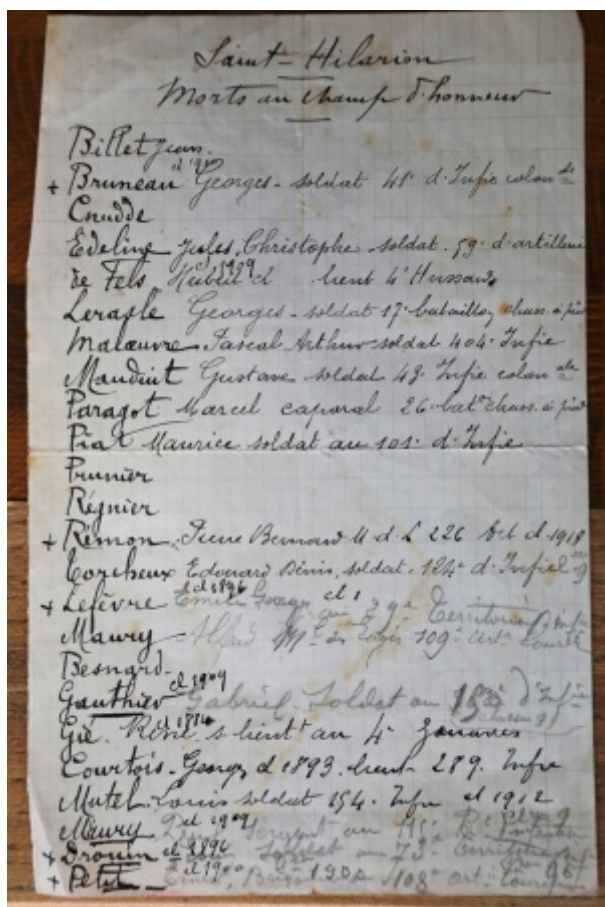 Saint-Hilarion
Morts au champ d'honneur
Billet Jean.
+ Bruneau Georges - soldat 41e d. Infie colonale
Cnudde
Edeline Jules, Christophe - soldat. 59e d'artillerie
de Fels Hubert cl 1909 lieut 4e Hussards
Lerasle Georges - soldat 17e bataillon chass. à pied
Malœuvre Pascal Arthur soldat 404e Infie
Mauduit Gustave soldat 43e Infie colonale
Paragot Marcel caporal 26e batn chass. à pied
Piat Maurice soldat au 101e d. Infie
Prunier
Régnier
+ Rémon Pierre Bernard M. d. L 226 cl. 1918
Torcheux Edouard Dénis, soldat. 124e d. Infie
+ Lefèvre cl 1896 Emile George au 29e Territorial
Maury Alfred Mal des Logis 109e Artie Lourde
Besnard
Gauthier cl 1909 Gabriel. Soldat au d'Infie
Gié. René s. lieutt au 4e Zouaves
Courtois - Georges cl 1893. lieut 289. Infie
Mutel Louis soldat 154. Infie cl 1912
Maury cl 1909 Sergent au 115e
+ Drouin cl 1896 Soldat au 73e
+ Petit cl 1900 108e art. Lourde